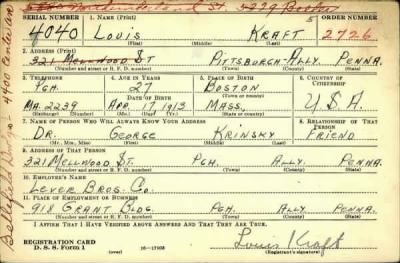 SERIAL NUMBER 1. NAME (Print) ORDER NUMBER
4040 LOUIS KRAFT 2726
(First) (Middle) (Last)
2. ADDRESS (Print)
321 MELLWOOD ST PITTSBURGH-ALLY. PENNA.
(Number and street or R. F. D. number) (Town) (County) (State)
3. TELEPHONE 4. AGE IN YEARS 5. PLACE OF BIRTH 6. COUNTRY OF CITIZENSHIP
PGH. 27 BOSTON
DATE OF BIRTH
MA. 2239 APR. 17 1913 MASS. U.S.A.
(Exchange) (Number) (Mo.) (Day) (Yr.) (State or country)
7. NAME OF PERSON WHO WILL ALWAYS KNOW YOUR ADDRESS 8. RELATIONSHIP OF THAT PERSON
DR. GEORGE KRINSKY FRIEND
(Mr., Mrs., Miss) (First) (Middle) (Last)
9. ADDRESS OF THAT PERSON
321 MELLWOOD ST. PGH. ALLY. PENNA.
(Number and street or R. F. D. number) (Town) (County) (State)
10. EMPLOYER'S NAME
LEVER BROS. CO.
11. PLACE OF EMPLOYMENT OR BUSINESS
918 GRANT BLDG. PGH ALLY PENNA.
(Number and street or R. F. D. number) (Town) (County) (State)
I AFFIRM THAT I HAVE VERIFIED ABOVE ANSWERS AND THAT THEY ARE TRUE.
REGISTRATION CARD
D. S. S. Form 1 (over) Louis Kraft
(Registrant's signature)
4400 Center Ave